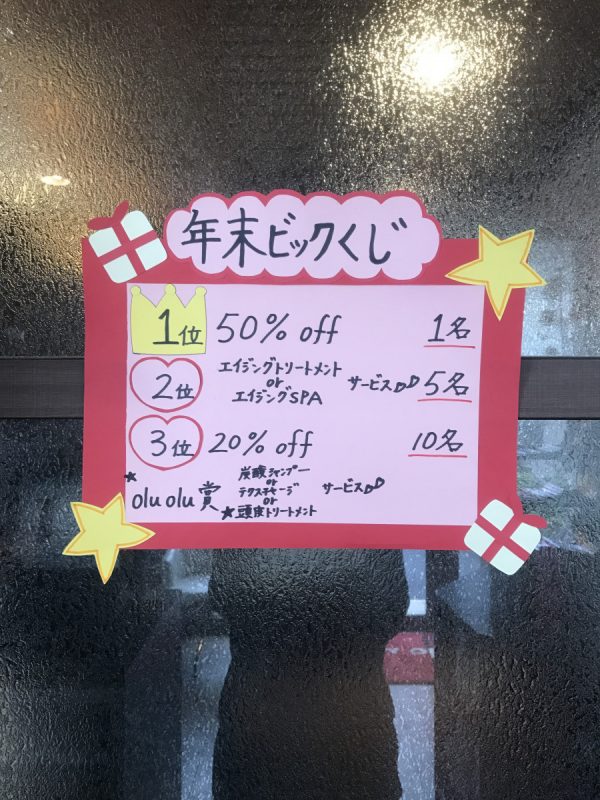 年末ビックくじ
1位 50% off 1名
2位 エイジングトリートメント or エイジングSPA サービス 5名
3位 20% off 10名
olu olu 賞 炭酸シャンプー or テクスチャージ or 頭皮トリートメント サービス